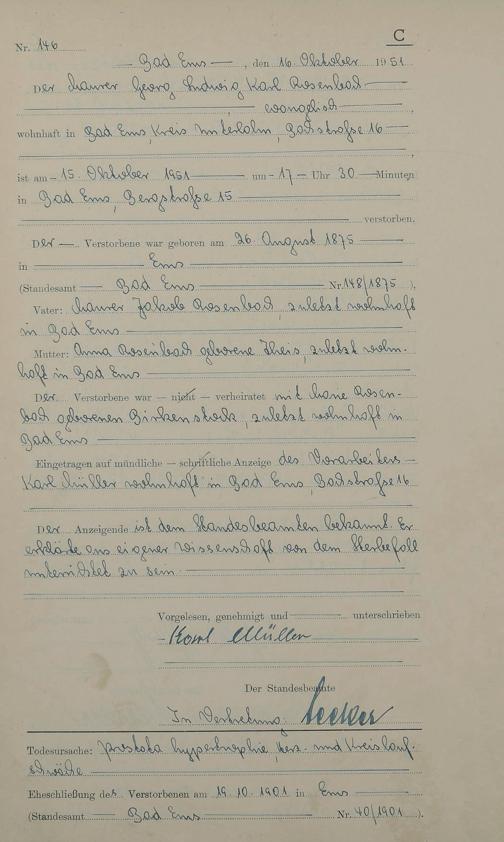 C
Nr. 146
Bad Ems, den 16. Oktober 1951
Der Maurer Georg Ludwig Karl Rosenbach
evangelisch,
wohnhaft in Bad Ems, Kreis Unterlahn, Badstraße 16
,
ist am 15. Oktober 1951 um 17 Uhr 30 Minuten
in Bad Ems, Bergstraße 15
verstorben.
Der Verstorbene war geboren am 26. August 1875
in Ems
(Standesamt Bad Ems Nr. 148/1875).
Vater: Maurer Jakob Rosenbach, zuletzt wohnhaft
in Bad Ems
Mutter: Anna Rosenbach geborene Theis, zuletzt wohn-
haft in Bad Ems
Der Verstorbene war — nicht — verheiratet mit Marie Rosen-
bach geborenen Birkenstock, zuletzt wohnhaft in
Bad Ems
Eingetragen auf mündliche — schriftliche Anzeige des Vorarbeiters
Karl Müller wohnhaft in Bad Ems, Badstraße 16
Der Anzeigende ist dem Standesbeamten bekannt. Er
erklärte aus eigener Wissenschaft von dem Sterbefall
unterrichtet zu sein.
Vorgelesen, genehmigt und unterschrieben
Karl Müller
Der Standesbeamte
In Vertretung:
Todesursache: Prostata hypertrophie, Herz- und Kreislauf-
schwäche
Eheschließung des Verstorbenen am 19.10.1901 in Ems
(Standesamt Bad Ems Nr. 40/1901).